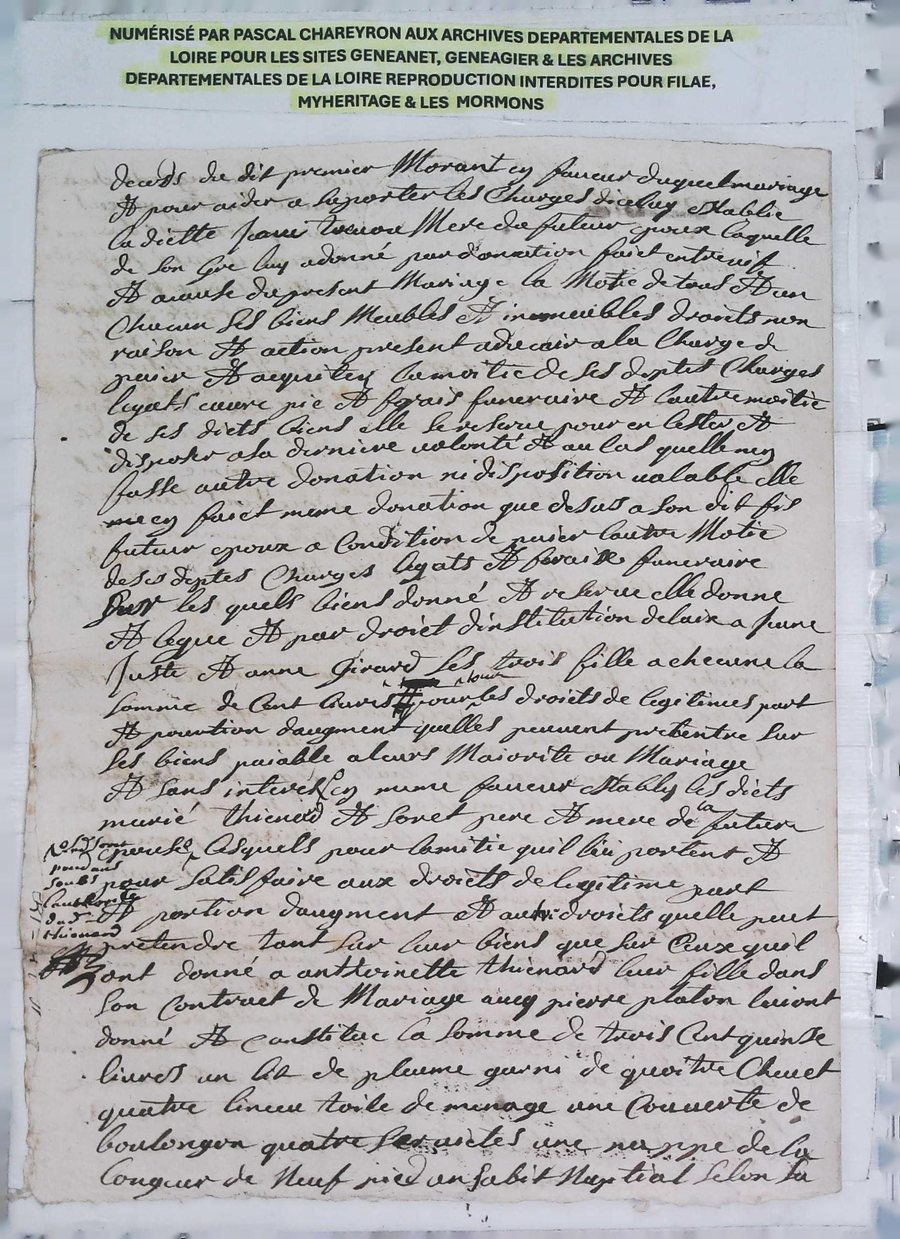 NUMÉRISÉ PAR PASCAL CHAREYRON AUX ARCHIVES DEPARTEMENTALES DE LA
LOIRE POUR LES SITES GENEANET, GENEAGIER & LES ARCHIVES
DEPARTEMENTALES DE LA LOIRE REPRODUCTION INTERDITES POUR FILAE,
MYHERITAGE & LES MORMONS
deceds du dit premier Morant en faveur duquel mariage
Et pour aider a suporter les Charges diceluy establie
la ditte Mere du futur epoux laquelle
de son gre luy a donné par donation faict entre vif
Et a cause du present Mariage la Motié de tous Et un
Chacun ses biens Meubles Et immeubles droits nom
raison Et action present advenir a la Charge de
paier Et aquiter la moitié de ses deptes Charges
legats œuvre pie Et frais funeraire Et lautre moitié
de ses dicts biens elle se reserve pour en tester Et
disposer a sa derniere volonté Et au cas quelle nen
fasse autre donation ni disposition valable elle
en faict meme donation que desus a son dit fis
futur epoux a Condition de paier lautre Motié
de ses deptes Charges legats Et fraits funeraire
sur les quels biens donné Et reserve elle donne
Et legue Et par droict dinstitution delaix a
Juste Et anne Girard ses trois fille a checune la
somme de Cent livres pour tous les droits de legitimes part
Et pourtion daugment quelles peuvent pretentre sur
ses biens paiable a leurs Majorité ou Mariage
Et sans interés En meme faveur establys les dicts
marié thienard Et soret pere Et mere de la future
epouse lesquels pour lamitié quil lui portent Et
pour satisfaire aux droicts de legitime part
Et portion daugment Et autre droicts quelle peut
pretendre tant sur leur biens que sur Ceux quil
ont donné a anthoinette thienard leur fille dans
son Contract de Mariage avec pierre platon lui ont
donné Et constitue la somme de trois Cent quinse
livres un lit de plume garni de quoitre Chevet
quatre linceu toile de menage une Couverte de
boulongon quatre serviettes une nappe de la
Longeur de Neuf pied un habit Nuptial selon sa
soret
soubs
lauthorité
dud
thienard